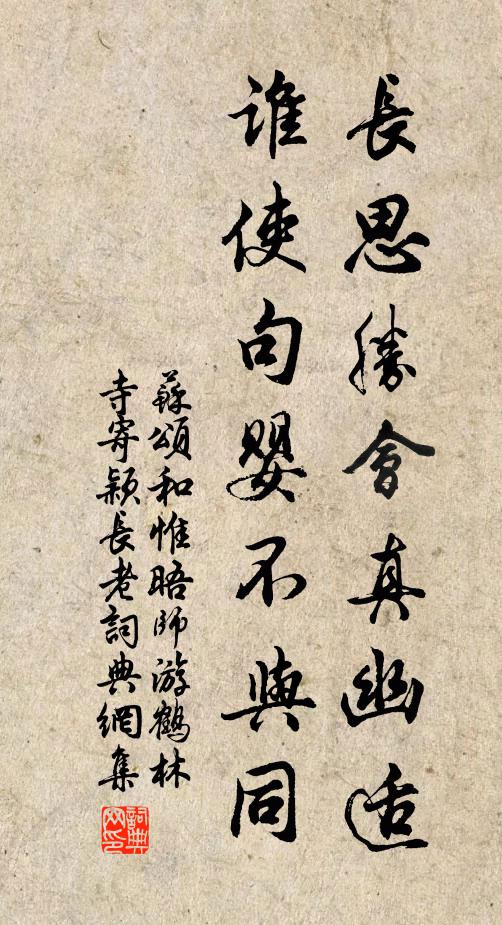 長思勝會真幽适
誰使句嬰不與同
蘇頌和惟晤師游鶴林
寺寄穎長老詞典網集
詞典网印